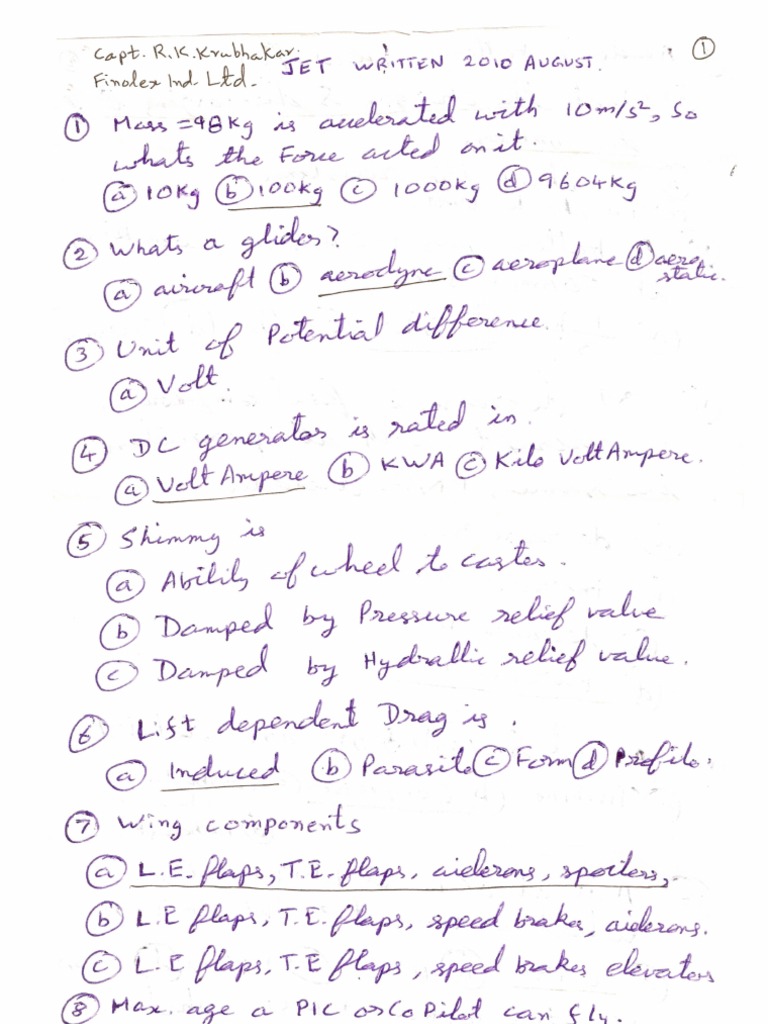 Capt. R.K. Krubhakar.
Finolex Ind. Ltd.
JET WRITTEN 2010 AUGUST.
1
1 Mass = 98 kg is accelerated with 10 m/s², So
whats the Force acted on it.
a 10 kg b 100 kg c 1000 kg d 9604 kg
2 Whats a glider?
a aircraft b aerodyne c aeroplane d aero
static.
3 Unit of Potential difference.
a Volt.
4 DC generator is rated in.
a Volt Ampere b KWA c Kilo Volt Ampere.
5 Shimmy is
a Ability of wheel to caster.
b Damped by Pressure relief value
c Damped by Hydrallic relief value.
6 Lift dependent Drag is.
a Induced b Parasite c Form d Profile.
7 Wing components
a L.E. flaps, T.E. flaps, aielerons, spoilers,
b L.E flaps, T.E. flaps, speed brakes, aielerons.
c L.E flaps, T.E flaps, speed brakes elevators
8 Max. age a PIC or Co Pilot can fly.